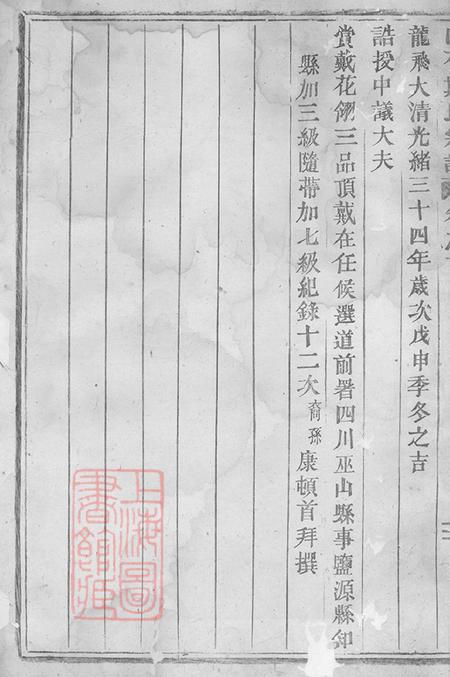 龍飛大清光緒三十四年歲次戊申季冬之吉
誥授中議大夫
賞戴花翎三品頂戴在任候選道前署四川巫山縣事鹽源縣知
縣加三級隨帶加七級紀錄十二次裔孫康頓首拜撰
上海圖書館藏